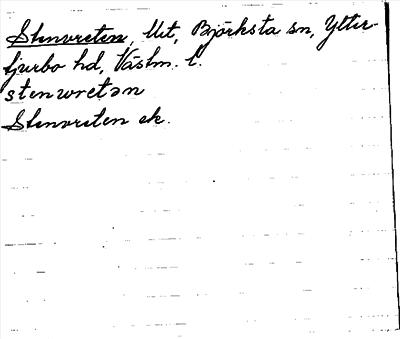 Stenvreten, Utt, Björksta sn, Ytter-
tjurbo hd, Västm. l.
stenvretən
Stenvreten ek.